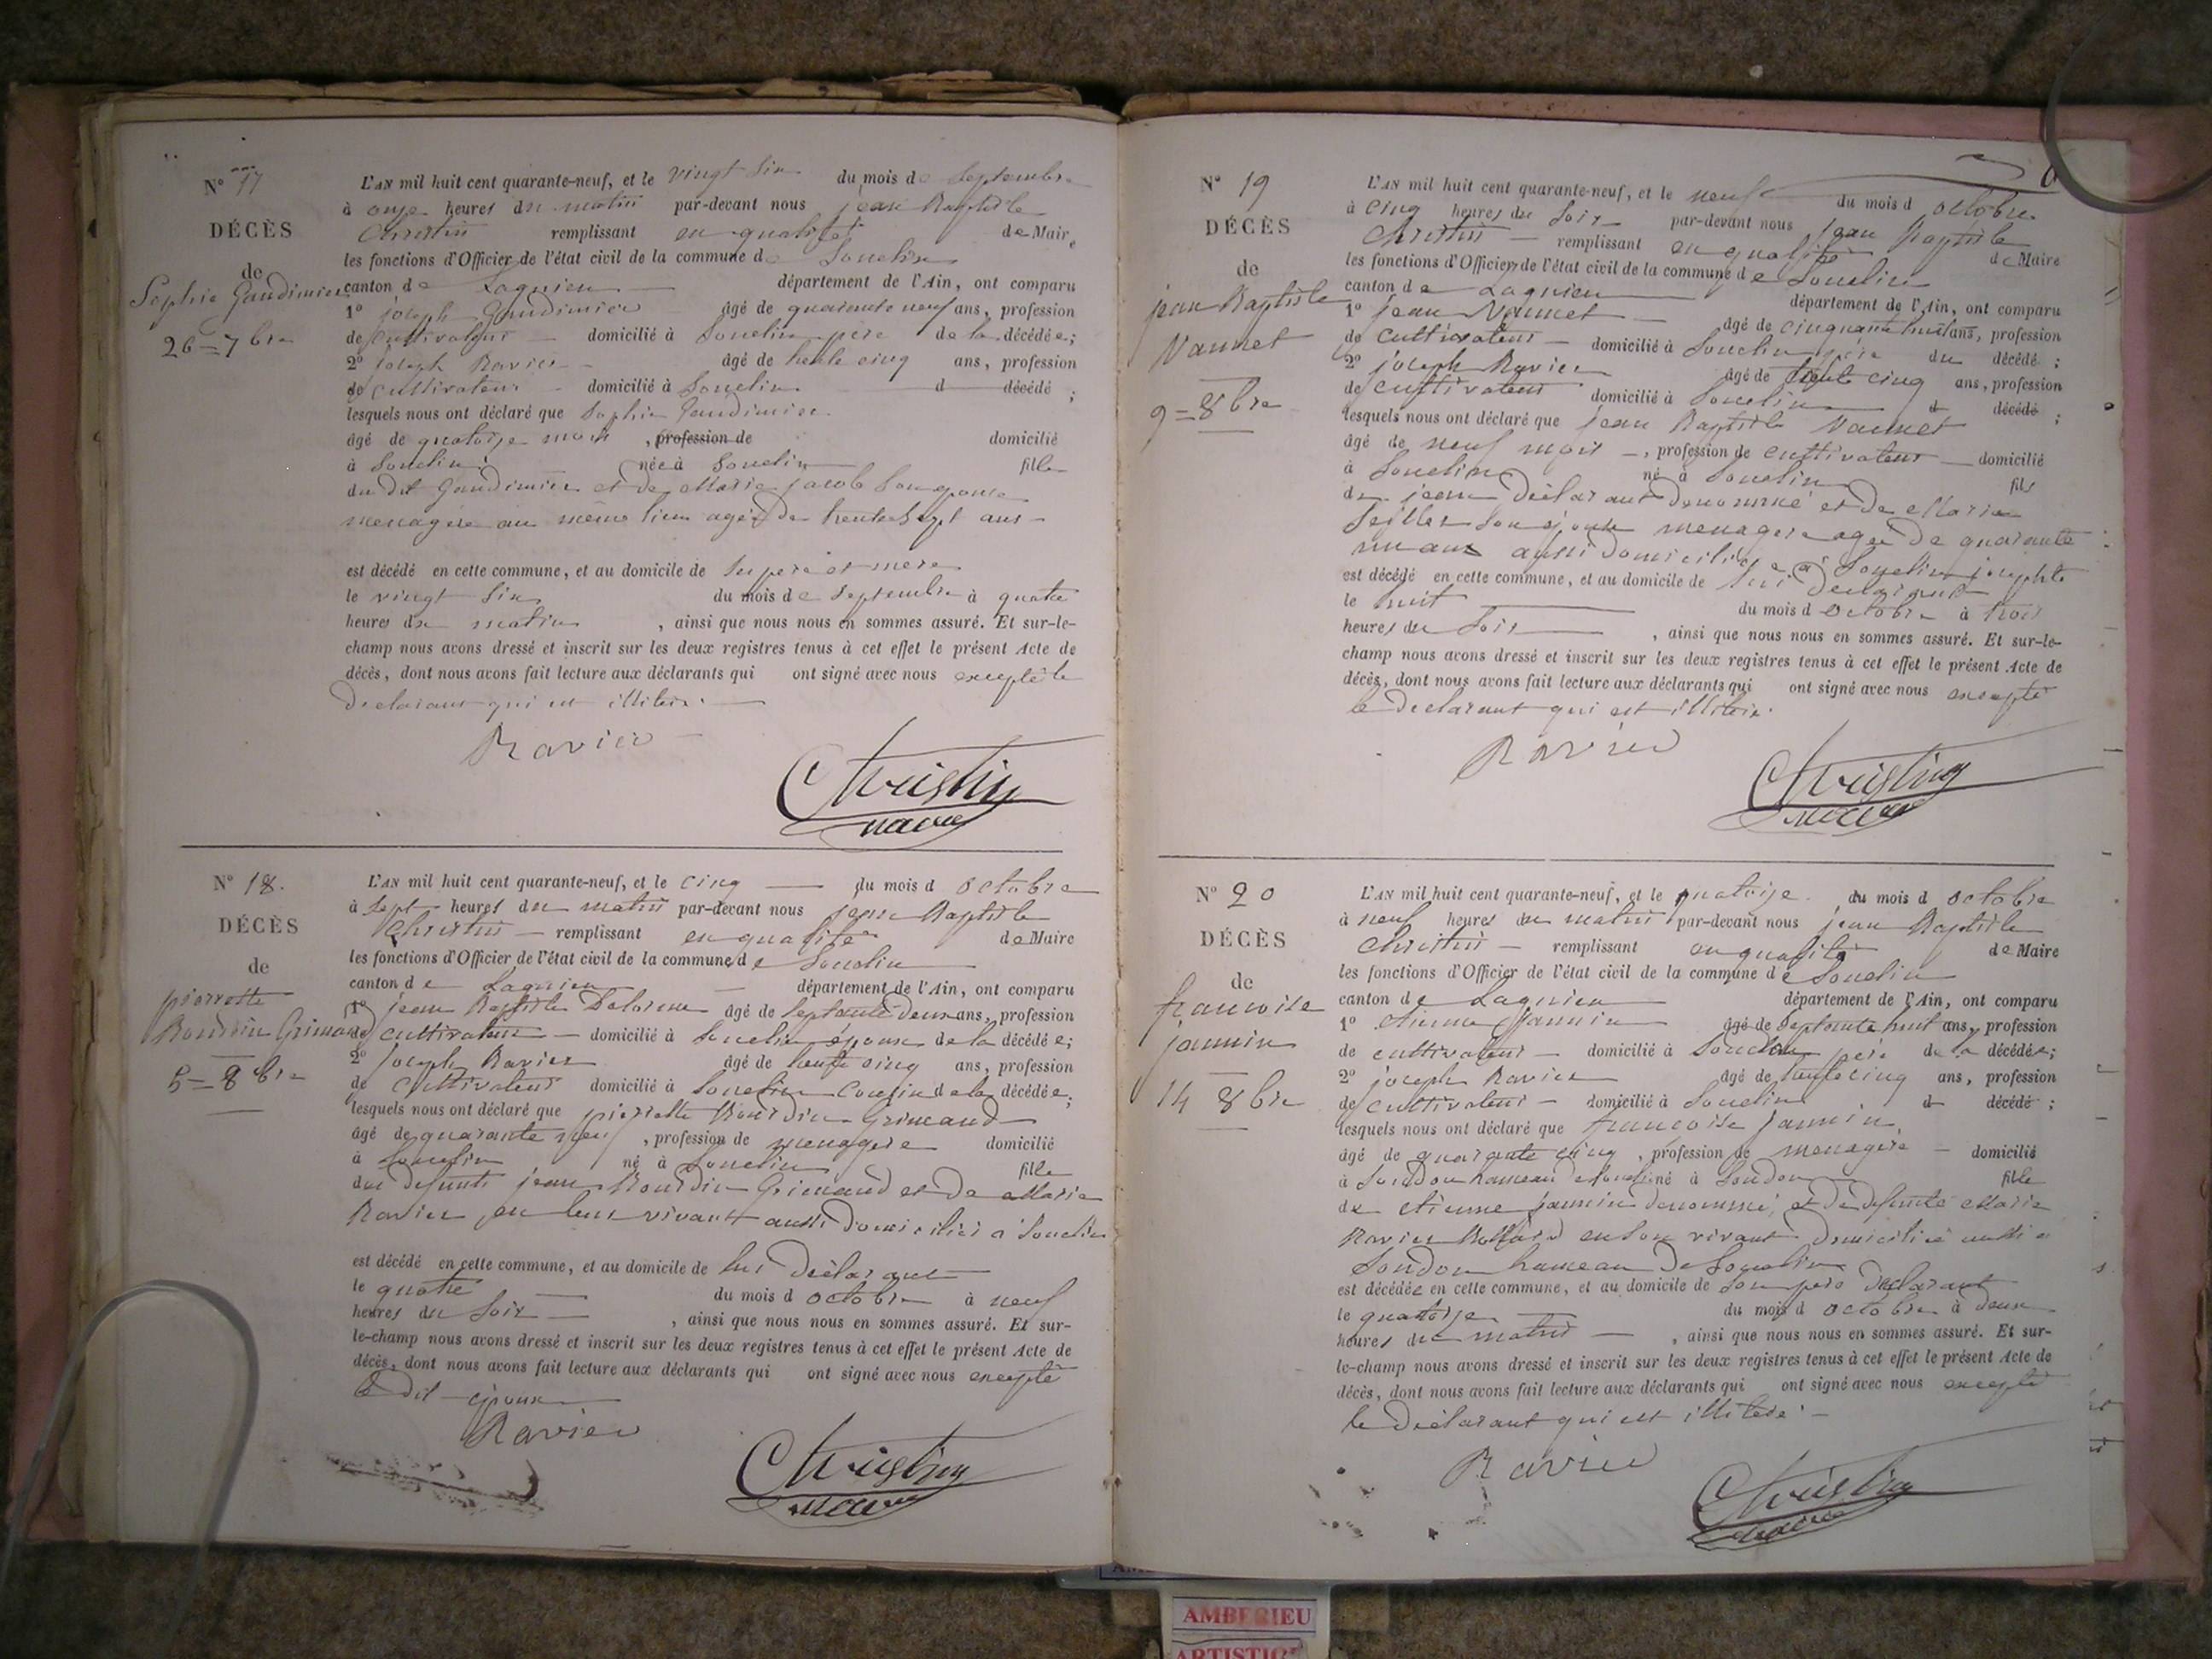 N° 17
DÉCÈS
de
Sophie Gaudimier
26=7bre
L'AN mil huit cent quarante-neuf, et le vingt Six du mois de Septembre
à onze heures du matin par-devant nous jean Baptiste
Christin remplissant en qualité de Maire
les fonctions d'Officier de l'état civil de la commune de Souclin
canton de Lagnieu département de l'Ain, ont comparu
1° joseph Gaudimier âgé de quarante neuf ans, profession
de cultivateur domicilié à Souclin père de la décédée;
2° joseph Ravier âgé de trente cinq ans, profession
de cultivateur domicilié à Souclin d décédé ;
lesquels nous ont déclaré que Sophie Gaudimier
âgé de quatorze mois , profession de domicilié
à Souclin née à Souclin fille
du dit Gaudimier et de Marie jacob Son epouse
menagère au même lieu agée de trente Sept ans
est décédé en cette commune, et au domicile de Ses pere et mere
le vingt Six du mois de Septembre à quatre
heures du matin , ainsi que nous nous en sommes assuré. Et sur-le-
champ nous avons dressé et inscrit sur les deux registres tenus à cet effet le présent Acte de
décès, dont nous avons fait lecture aux déclarants qui ont signé avec nous excepté le
Declarant qui est illitéré.
Ravier
Christin
maire
N° 18.
DÉCÈS
de
pierrette
Bourdin Grimaud
5=8bre
L'AN mil huit cent quarante-neuf, et le cinq du mois d octobre
à Sept heures du matin par-devant nous jean Baptiste
Christin remplissant en qualité de Maire
les fonctions d'Officier de l'état civil de la commune de Souclin
canton de Lagnieu département de l'Ain, ont comparu
1° jean Baptiste Delorme âgé de Septante Deux ans, profession
de cultivateur domicilié à Souclin époux de la décédée;
2° joseph Ravier âgé de trente cinq ans, profession
de cultivateur domicilié à Souclin Cousin de la décédée;
lesquels nous ont déclaré que pierrette Bourdin Grimaud
âgé de quarante neuf , profession de menagere domicilié
à Souclin né à Souclin fille
des defunts jean Bourdin Grimaud et de Marie
Ravier en leur vivant aussi domiciliés à Souclin
est décédé en cette commune, et au domicile de lui Déclarant
le quatre du mois d octobre à neuf
heures du Soir , ainsi que nous nous en sommes assuré. Et sur-
le-champ nous avons dressé et inscrit sur les deux registres tenus à cet effet le présent Acte de
décès, dont nous avons fait lecture aux déclarants qui ont signé avec nous excepté
le Dit époux
Ravier
Christin
maire
N° 19
DÉCÈS
de
jean Baptiste
Vannet
9=8bre
L'AN mil huit cent quarante-neuf, et le neuf du mois d octobre
à cinq heures du Soir par-devant nous jean Baptiste
Christin remplissant en qualité de Maire
les fonctions d'Officier de l'état civil de la commune de Souclin
canton de Lagnieu département de l'Ain, ont comparu
1° jean Vannet âgé de cinquante huit ans, profession
de cultivateur domicilié à Souclin père du décédé ;
2° joseph Ravier âgé de trente cinq ans, profession
de cultivateur domicilié à Souclin d décédé ;
lesquels nous ont déclaré que jean Baptiste Vannet
âgé de neuf mois , profession de cultivateur domicilié
à Souclin né à Souclin fils
de jean Déclarant denommé et de Marie
Seiller Son épouse menagere agée de quarante
un ans aussi domiciliée à Souclin
est décédé en cette commune, et au domicile de lui Declarant
le huit du mois d octobre à trois
heures du Soir , ainsi que nous nous en sommes assuré. Et sur-le-
champ nous avons dressé et inscrit sur les deux registres tenus à cet effet le présent Acte de
décès, dont nous avons fait lecture aux déclarants qui ont signé avec nous excepté
le declarant qui est illitéré.
Ravier
Christin
maire
N° 20
DÉCÈS
de
francoise
jannin
14 8bre
L'AN mil huit cent quarante-neuf, et le quatorze du mois d octobre
à neuf heures du matin par-devant nous jean Baptiste
Christin remplissant en qualité de Maire
les fonctions d'Officier de l'état civil de la commune de Souclin
canton de Lagnieu département de l'Ain, ont comparu
1° etienne jannin âgé de Septante huit ans, profession
de cultivateur domicilié à Souclin père de la décédée;
2° joseph Ravier âgé de trente cinq ans, profession
de cultivateur domicilié à Souclin d décédé ;
lesquels nous ont déclaré que françoise jannin
âgé de quarante cinq , profession de menagère domicilié
à Soudon hameau de Souclin né à Soudon fille
de etienne jannin denommé, et de defunte Marie
Ravier en Son vivant domiciliée aussi à
Soudon hameau de Souclin
est décédée en cette commune, et au domicile de Son père Declarant
le quatorze du mois d octobre à deux
heures du matin , ainsi que nous nous en sommes assuré. Et sur-
le-champ nous avons dressé et inscrit sur les deux registres tenus à cet effet le présent Acte de
décès, dont nous avons fait lecture aux déclarants qui ont signé avec nous excepté
le Déclarant qui est illitéré.
Ravier
Christin
maire
AMBERIEU